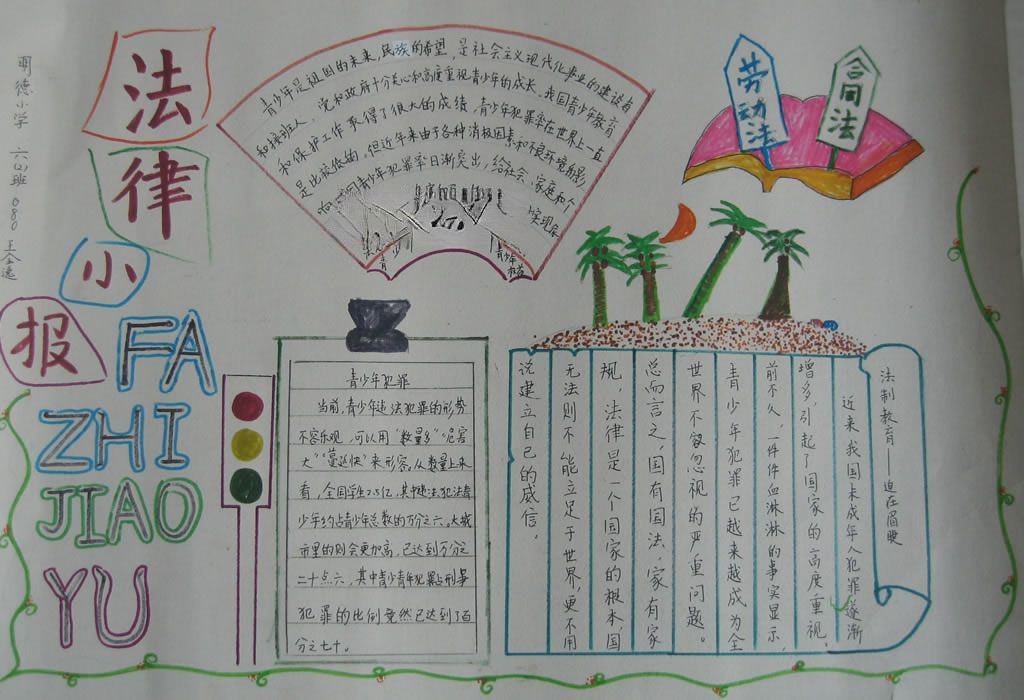 明德小学 六(2)班 080 王全逸
法
律
小
报
FA
ZHI
JIAO
YU
青少年是祖国的未来,民族的希望,是社会主义现代化事业的建设者
和接班人。党和政府十分关心和高度重视青少年的成长。我国青少年教育
和保护工作取得了很大的成绩,青少年犯罪率在世界上一直
是比较低的。但近年来由于各种消极因素和不良环境的影
响,我国青少年犯罪率日渐突出,给社会、家庭和个
劳动法
合同法
青少年犯罪
当前,青少年违法犯罪的形势
不容乐观,可以用“数量多”“危害
大”“蔓延快”来形容。从数量上来
看,全国学生2.5亿,其中违法犯法青
少年约占青少年总数的万分之六。大城
市里的则会更加高,已达到万分之
二十点六,其中青少青年犯罪占刑事
犯罪的比例竟然已达到了百
分之七十。
法制教育——迫在眉睫
近来我国未成年人犯罪逐渐
增多,引起了国家的高度重视,
前不久,一件件血淋淋的事实显示,
青少年犯罪已越来越成为全
世界不容忽视的严重问题。
总而言之,国有国法,家有家
规,法律是一个国家的根本,国
无法则不能立足于世界,更不用
说建立自己的威信。